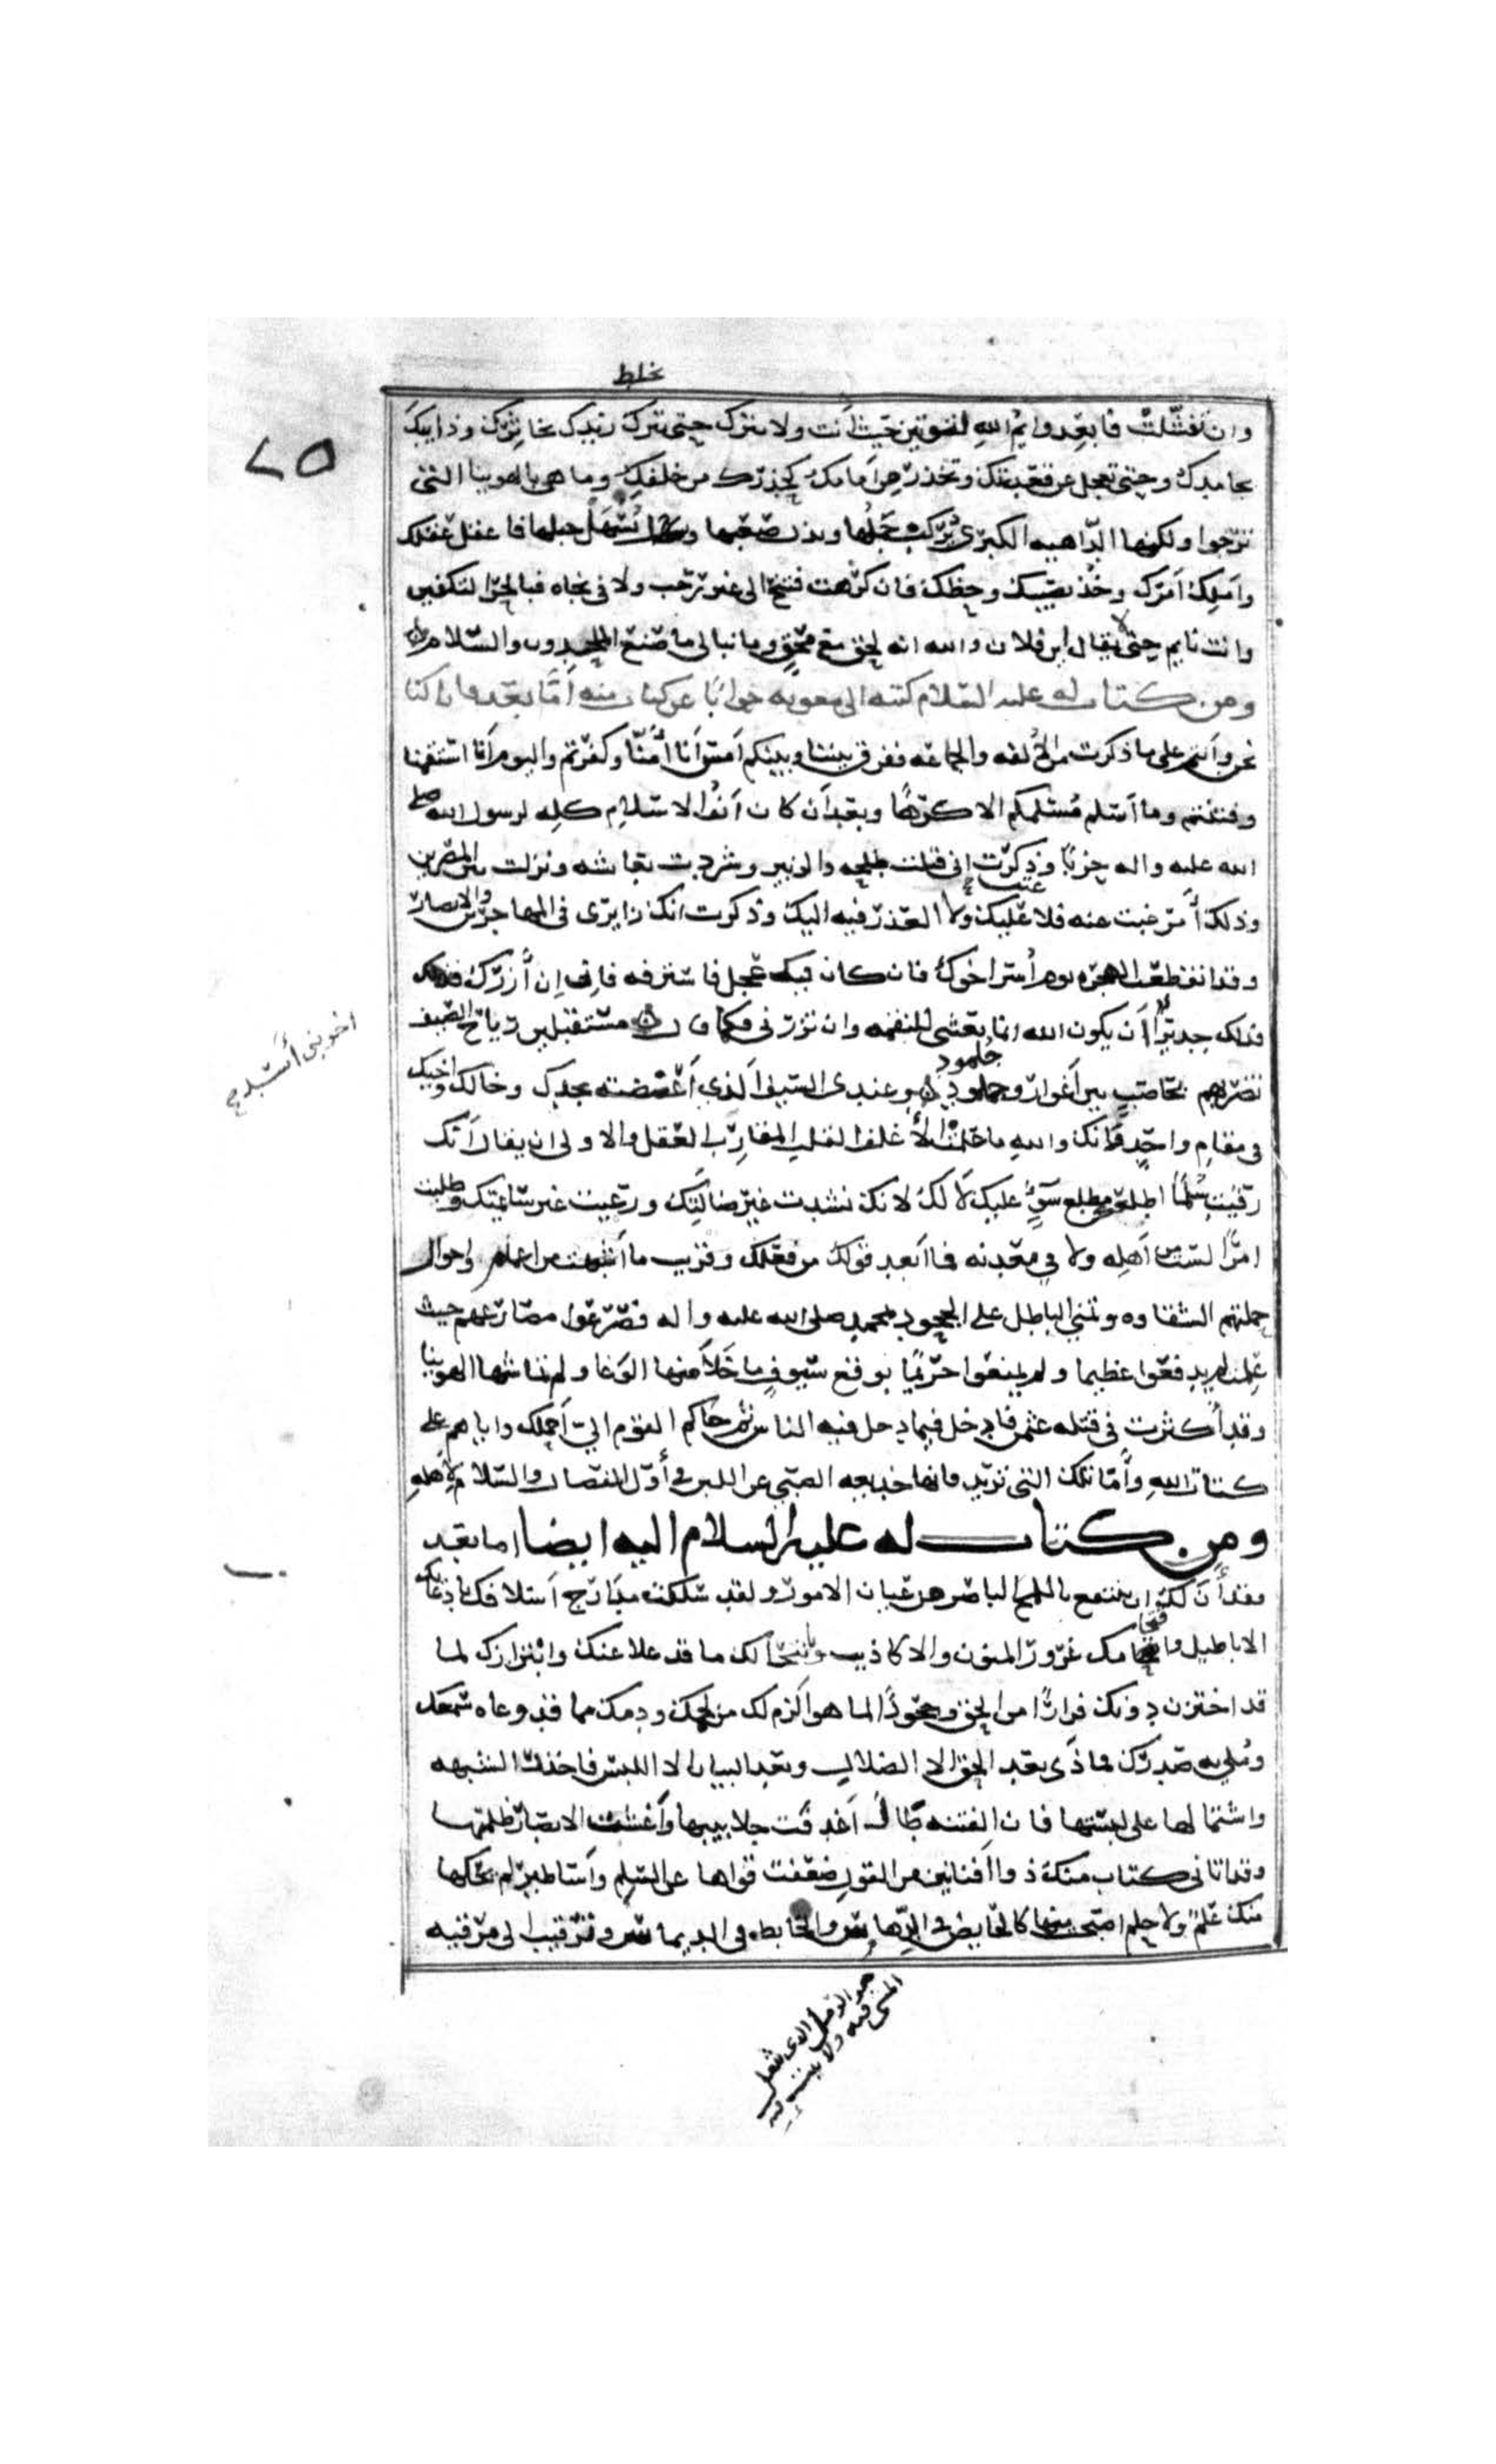 يخلط
وان تفشلت فابعد وايم الله لتوتين حيث انت ولا تترك حتى تترك زبدك بخاثرك وذايبك
بجامدك وحتى تعجل عن قعدتك وتحذر من امامك كحذرك من خلفك وما هى بالهوينا التى
ترجوا ولكنها الداهيه الكبرى يركب جملها ويذل صعبها ويسهل جبلها فاعقل عقلك
واملك امرك وخذ نصيبك وحظك فان كرهت فتنح الى غير رحب ولا فى نجاه فبالحرا لتكفين
وانت نايم حتى لا يقال اين فلان والله انه لحق مع محق وما نبالى ما صنع الملحدون والسلام
ومن كتاب له عليه السلام كتبه الى معويه جوابا عن كتاب منه اما بعد فانا كنا
نحن وانتم على ما ذكرت من الالفه والجماعه ففرق بيننا وبينكم امس انا امنا وكفرتم واليوم انا استقمنا
وفتنتم وما اسلم مسلمكم الا كرها وبعد ان كان انف الاسلام كله لرسول الله صلى
الله عليه واله حزبا وذكرت انى قتلت طلحه والزبير وشردت بعايشه ونزلت بين المصرين
وذلك امر غبت عنه فلا عليك ولا العذر فيه اليك وذكرت انك زايرى فى المهاجرين والانصار
وقد انقطعت الهجره يوم اسر اخوك فان كان فيك عجل فاسترفه فانى ان ازرك
فذلك جدير ان يكون الله انما بعثنى للنقمه وان تزرنى فكما قال مستقبلين رياح الصيف
تضربهم بحاصب بين اغوار وجلمود جلمود وعندى السيف الذى اعضضته بجدك وخالك واخيك
فى مقام واحد فانك والله ما علمت الاغلف القلب المقارب العقل والاولى ان يقال انك
رقيت سلما اطلعك مطلع سوء عليك لا لك لانك نشدت غير ضالتك ورعيت غير سائمتك وطلبت
امرا لست من اهله ولا فى معدنه فما ابعد قولك من فعلك وقريب ما اشبهت من اعمام واخوال
حملتهم الشقاوه وتمنى الباطل على الجحود بمحمد صلى الله عليه واله فصرعوا مصارعهم حيث
علمت لم يدفعوا عظيما ولم يمنعوا حريما بوقع سيوف ما خلا منها الوغا ولم تماشها الهوينا
وقد اكثرت فى قتله عثمن فادخل فيما دخل فيه الناس ثم حاكم القوم الى احملك واياهم على
كتاب الله واما تلك التى تريد فانها خدعه الصبى عن اللبن فى اول الفصال والسلام لاهله
ومن كتاب له عليه السلام اليه ايضا اما بعد
فقد ان لك ان تنتفع باللمح الباصر من عيان الامور ولقد سلكت مدارج اسلافك بادعائك
الاباطيل واقتحامك غرور المنون والاكاذيب وبانتحالك ما قد علا عنك وابتزازك لما
قد اختزن دونك فرارا من الحق وجحودا لما هو الزم لك من لحمك ودمك مما قد وعاه سمعك
وملى به صدرك فماذا بعد الحق الا الضلال وبعد البيان الا اللبس فاحذر الشبهه
واشتمالها على لبستها فان الفتنه طال ما اغدفت جلابيبها واغشت الابصار ظلمتها
وقد اتانى كتاب منك ذوا افانين من القول ضعفت قواها عن السلم واساطير لم يحكها
منك علم ولا حلم اصبحت منها كالخايض فى الدهاس والخابط فى الديماس وترقيت الى مرقبه
اخوبنى اسد
هو الرمل الذى